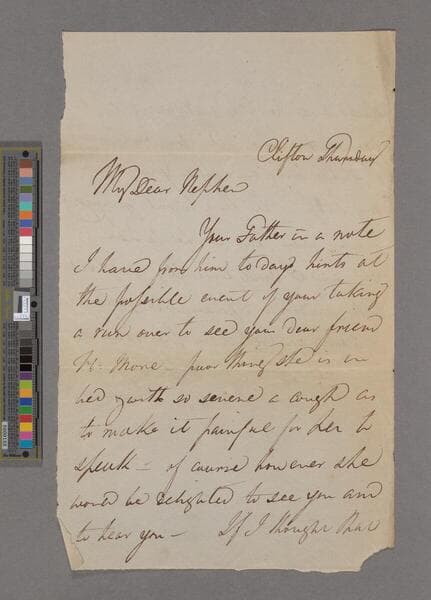 Clifton Thursday
My Dear Nephew
Your Father in a note
I have from him to day, hints at
the possible event of your taking
a run over to see your dear friend
H: More - poor thing she is in
bed with so severe a cough as
to make it painful for her to
speak - of course however she
would be delighted to see you and
to hear you - If I thought that